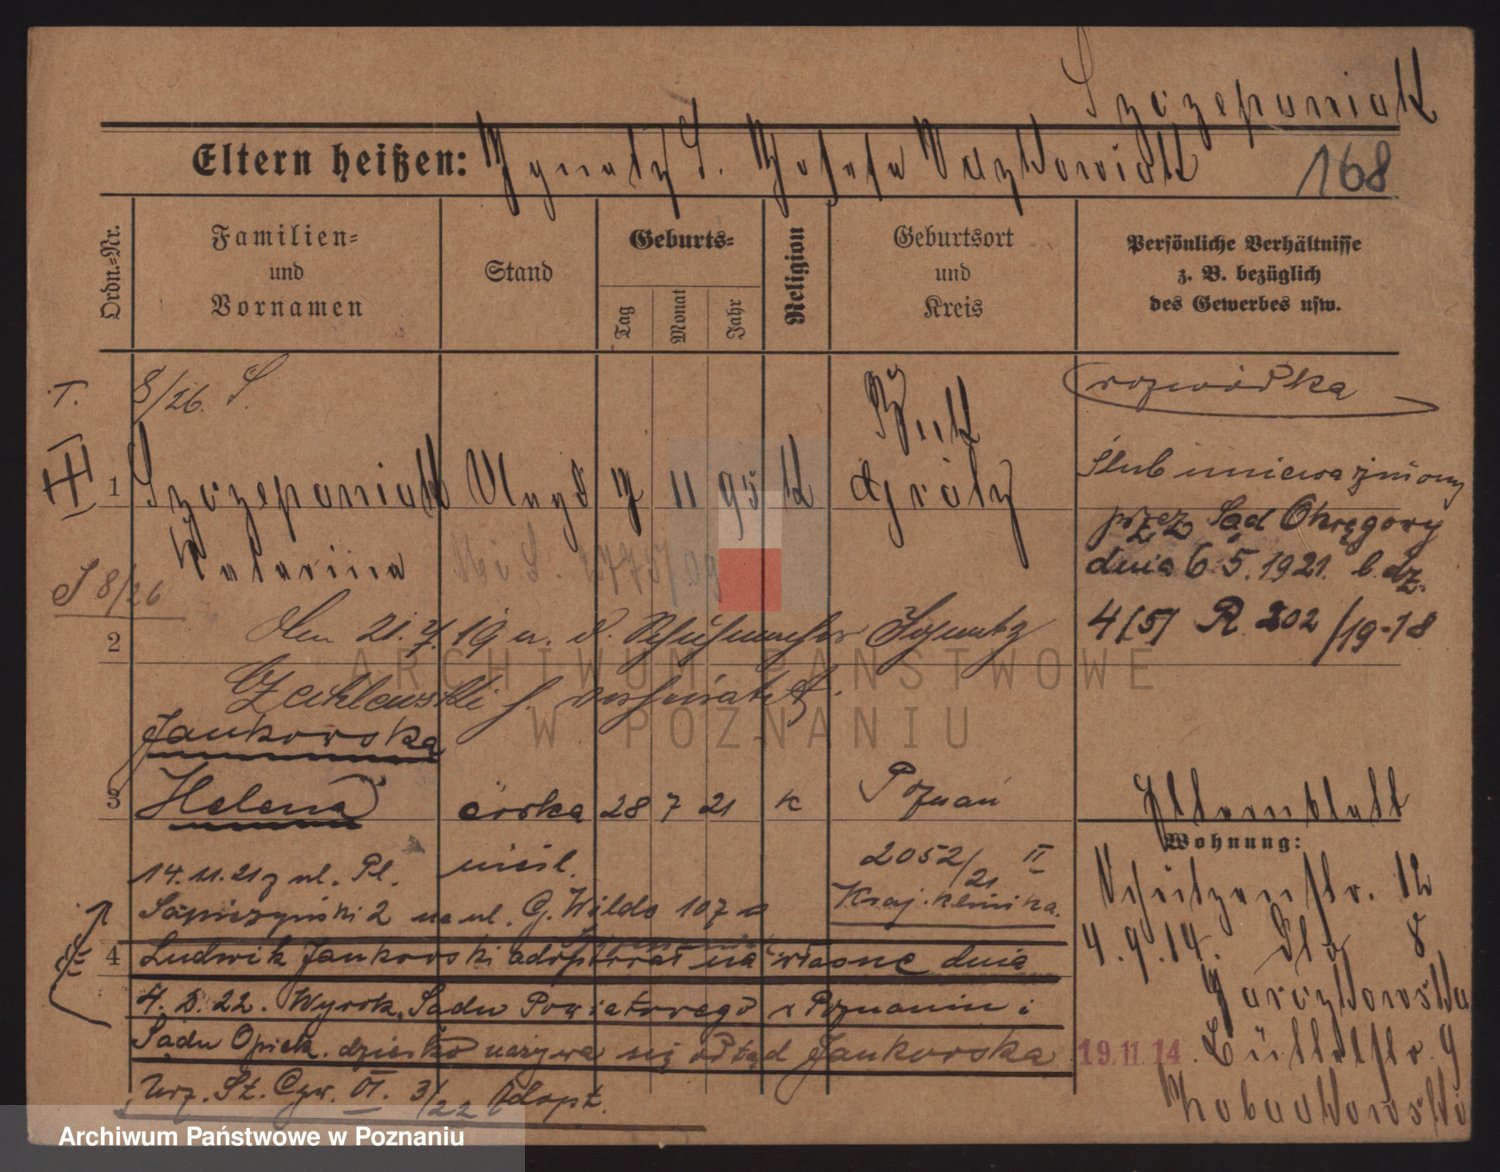 Szczepaniak
Eltern heißen: Ignatz S. Josefa
168
Ordn.=Nr.
Familien=
und
Vornamen
Stand
Geburts=
Tag
Monat
Jahr
Religion
Geburtsort
und
Kreis
Persönliche Verhältnisse
z. B. bezüglich
des Gewerbes usw.
T.
8/26. S.
rozwódka
III
1
Szczepaniak
7 11 95 K
Buk
Grätz
Ślub unieważniony
przez Sąd Okręgowy
Katarina
Mi S. 1775/09
dnia 6 5. 1921. l. dz.
4/5/ R 202/19-18
S 8/26
2
Den 21. 19 a. d. Schuhmacher Ignatz
verheiratet.
Jankowska
3
Helena
córka 28 7 21 K
Poznań
Elternblatt
Wohnung:
14.11.21 z ul. Pl.
nieśl.
2052/21 II
Kraj. klinika.
Schützenstr. 12
Sapieżyński 2 na ul. G. Wilda 107 a
4. 9. 14. 8
4
Ludwik Jankowski adoptował na własne dnia
4. 5. 22. Wyrok. Sądu Powiatowego w Poznaniu i
Sądu Opiek. dziecko nazywa się odtąd Jankowska
19.11.14.
9
Urz. St. Cyw. VI. 3/22 Adopt.
ARCHIWUM PAŃSTWOWE
W POZNANIU
Archiwum Państwowe w Poznaniu